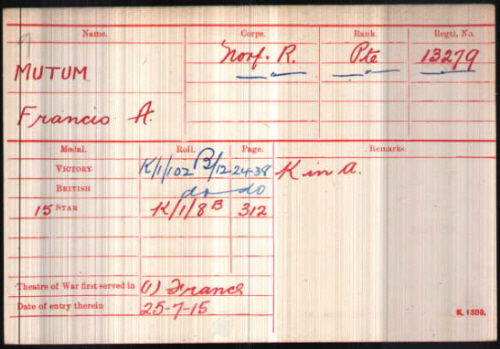 Name. Corps. Rank. Regtl. No.
MUTUM Norf. R. Pte 13279
Francis A.
Medal. Roll. Page. Remarks.
VICTORY K/1/102 B/12 2438 K in A.
BRITISH do do
15 STAR K/1/8 B 312
Theatre of War first served in (1) France
Date of entry therein 25-7-15
K. 1380.